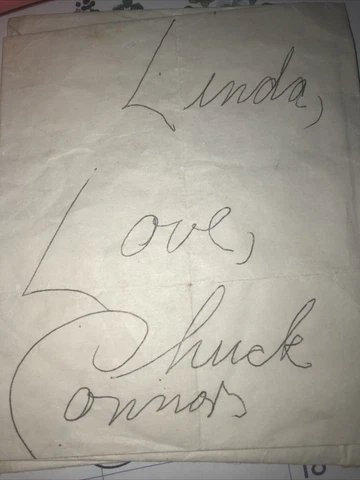 Linda,
Love,
Chuck
Connors
10